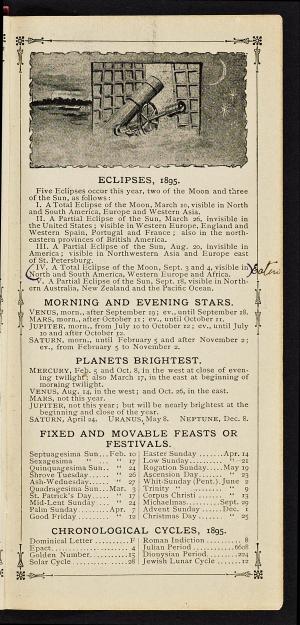 ECLIPSES, 1895.
Five Eclipses occur this year, two of the Moon and three
of the Sun, as follows:
I. A Total Eclipse of the Moon, March 10, visible in North
and South America, Europe and Western Asia.
II. A Partial Eclipse of the Sun, March 26, invisible in
the United States; visible in Western Europe, England and
Western Spain, Portugal and France; also in the north-
eastern provinces of British America.
III. A Partial Eclipse of the Sun, Aug. 20, invisible in
America; visible in Northwestern Asia and Europe east
of St. Petersburg.
IV. A Total Eclipse of the Moon, Sept. 3 and 4, visible in
North and South America, Western Europe and Africa.
V. A Partial Eclipse of the Sun, Sept. 18, visible in North-
ern Australia, New Zealand and the Pacific Ocean.
MORNING AND EVENING STARS.
VENUS, morn., after September 19; ev., until September 28.
MARS, morn., after October 11; ev., until October 11.
JUPITER, morn., from July 10 to October 12; ev., until July
10 and after October 12.
SATURN, morn., until February 5 and after November 2;
ev., from February 5 to November 2.
PLANETS BRIGHTEST.
MERCURY, Feb. 5 and Oct. 8, in the west at close of even-
ing twilight; also March 17, in the east at beginning of
morning twilight.
VENUS, Aug. 14, in the west; and Oct. 26, in the east.
MARS, not this year.
JUPITER, not this year; but will be nearly brightest at the
beginning and close of the year.
SATURN, April 24. URANUS, May 8. NEPTUNE, Dec. 8.
FIXED AND MOVABLE FEASTS OR
FESTIVALS.
Septuagesima Sun...Feb. 10 | Easter Sunday.......Apr. 14
Sexagesima " " 17 | Low Sunday.......... " 21
Quinquagesima Sun.. " 24 | Rogation Sunday....May 19
Shrove Tuesday..... " 26 | Ascension Day....... " 23
Ash-Wednesday...... " 27 | Whit-Sunday (Pent.).June 2
Quadragesima Sun..Mar. 3 | Trinity " " 9
St. Patrick's Day.... " 17 | Corpus Christi....... " 13
Mid-Lent Sunday.... " 24 | Michaelmas.........Sept. 29
Palm Sunday.......Apr. 7 | Advent Sunday.....Dec. 1
Good Friday......... " 12 | Christmas Day....... " 25
CHRONOLOGICAL CYCLES, 1895.
Dominical Letter.........F | Roman Indiction.........8
Epact....................4 | Julian Period.........6608
Golden Number..........15 | Dionysian Period......224
Solar Cycle.............28 | Jewish Lunar Cycle.....12